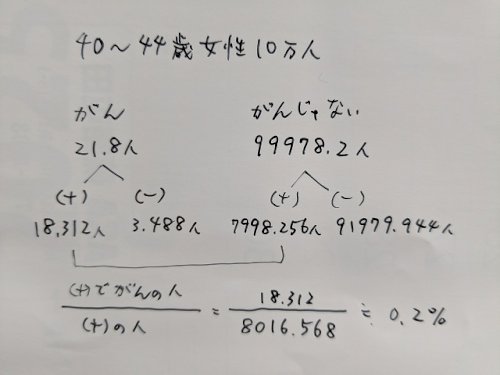 40～44歳女性10万人
がん がんじゃない
21.8人 99978.2人
(+) (-) (+) (-)
18.312人 3.488人 7998.256人 91979.944人
(+)でがんの人 / (+)の人 = 18.312 / 8016.568 ≒ 0.2%